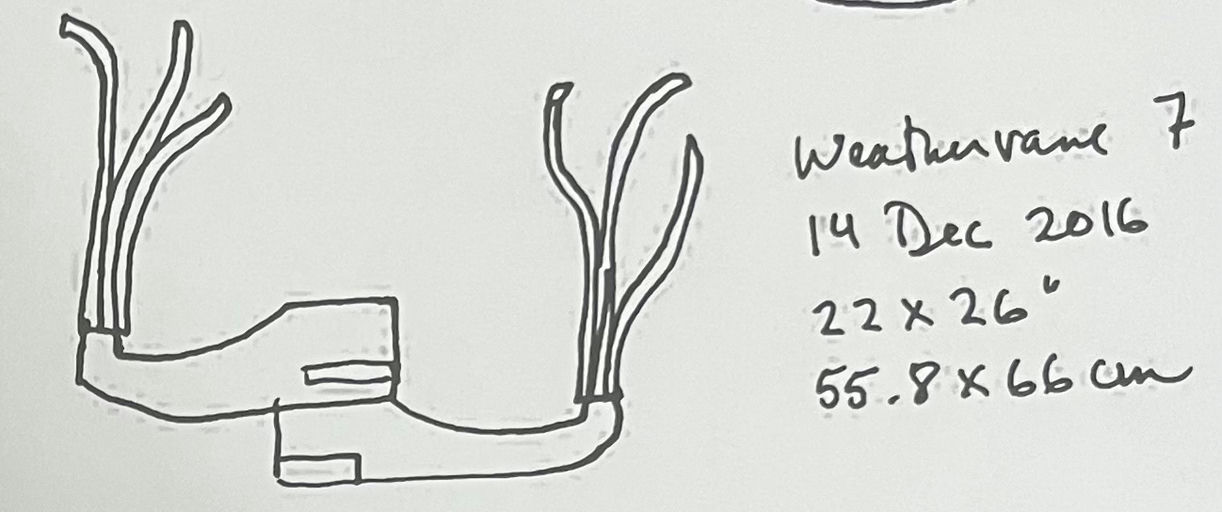 Weathervane 7
14 Dec 2016
22 x 26"
55.8 x 66 cm